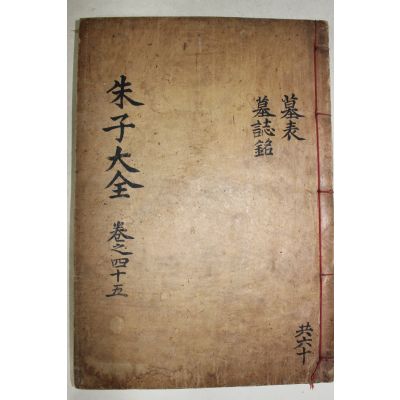 墓表
墓誌銘
共六十
朱子大全
卷之四十五